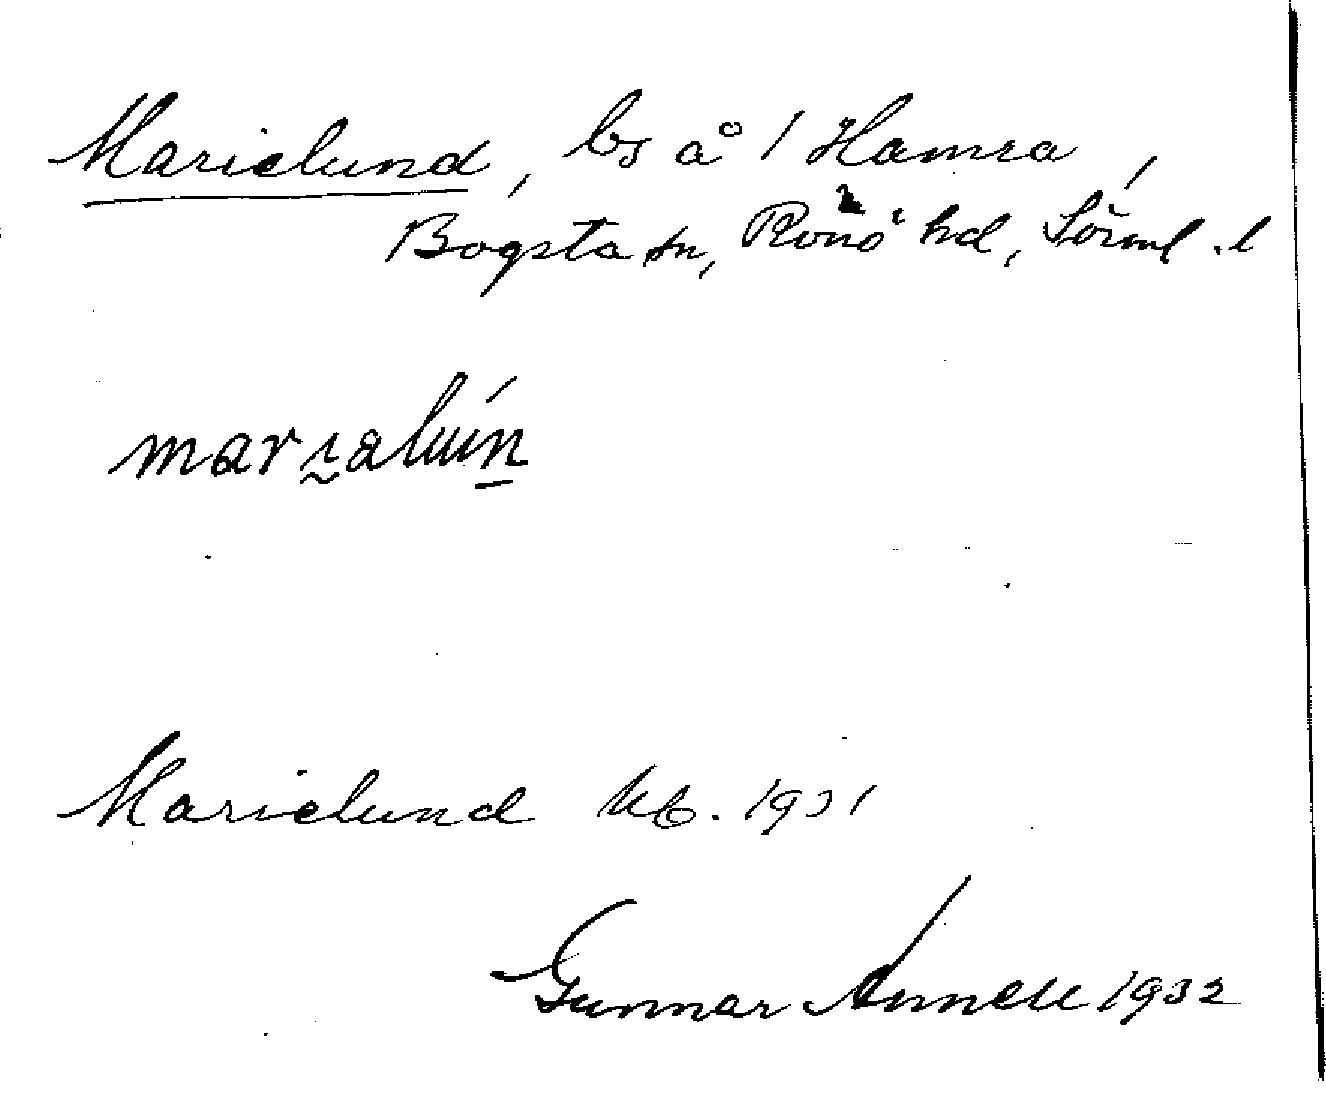 Marielund, bs å 1 Hamra,
Bogsta sn, Rönö hd, Sörml. l
Marielund kb. 1931
Gunnar Annell 1932